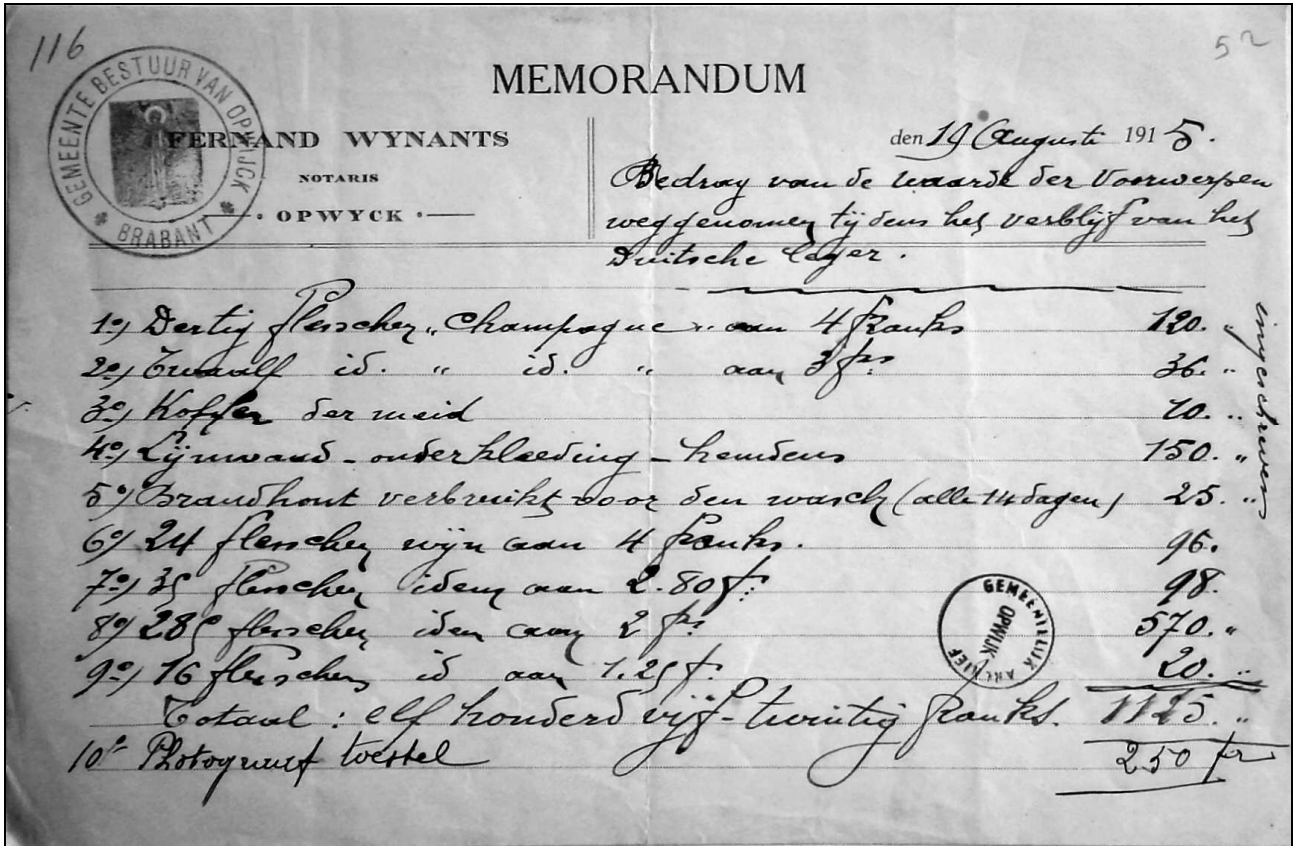 116
52
MEMORANDUM
GEMEENTE BESTUUR VAN OPWIJCK
BRABANT
FERNAND WYNANTS
NOTARIS
OPWYCK
den 19 Augusti 1915.
Bedrag van de waarde der Voorwerpen
weggenomen tijdens het verblijf van het
Duitsche leger.
1º) Dertig flesschen "Champagne" aan 4 franks 120. "
2º) Twaalf id. " id. " aan 3 frs 36. "
3º) Koffer der meid 10. "
4º) Lijnwaad - onderkleeding - hemdens 150. "
5º) Brandhout verbruikt voor den wasch (alle 14 dagen) 25. "
6º) 24 flesschen wijn aan 4 franks. 96.
7º) 35 flesschen idem aan 2.80 f: 98.
8º) 285 flesschen idem aan 2 frs 570. "
9º) 16 flesschen id aan 1.25 f. 20. "
Totaal : elf honderd vijf-twintig franks. 1125. "
10º Photograaf toestel 250 fr
ingeschreven
GEMEENTELIJK ARCHIEF
OPWIJK